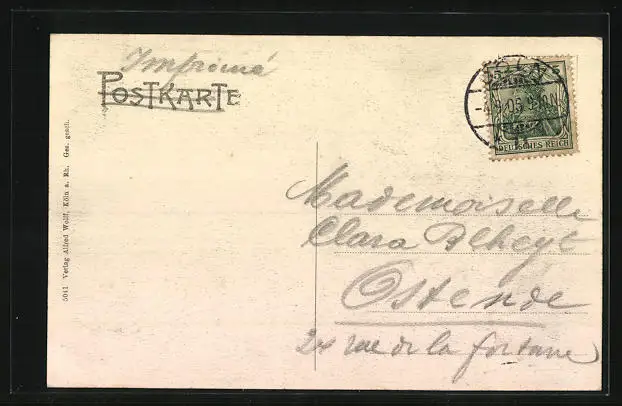 Imprimé
POSTKARTE
5 5
DEUTSCHES REICH
5041 Verlag Alfred Wolff, Köln a. Rh. Ges. gesch.
Mademoiselle
Clara
Ostende
24 rue de la fontaine